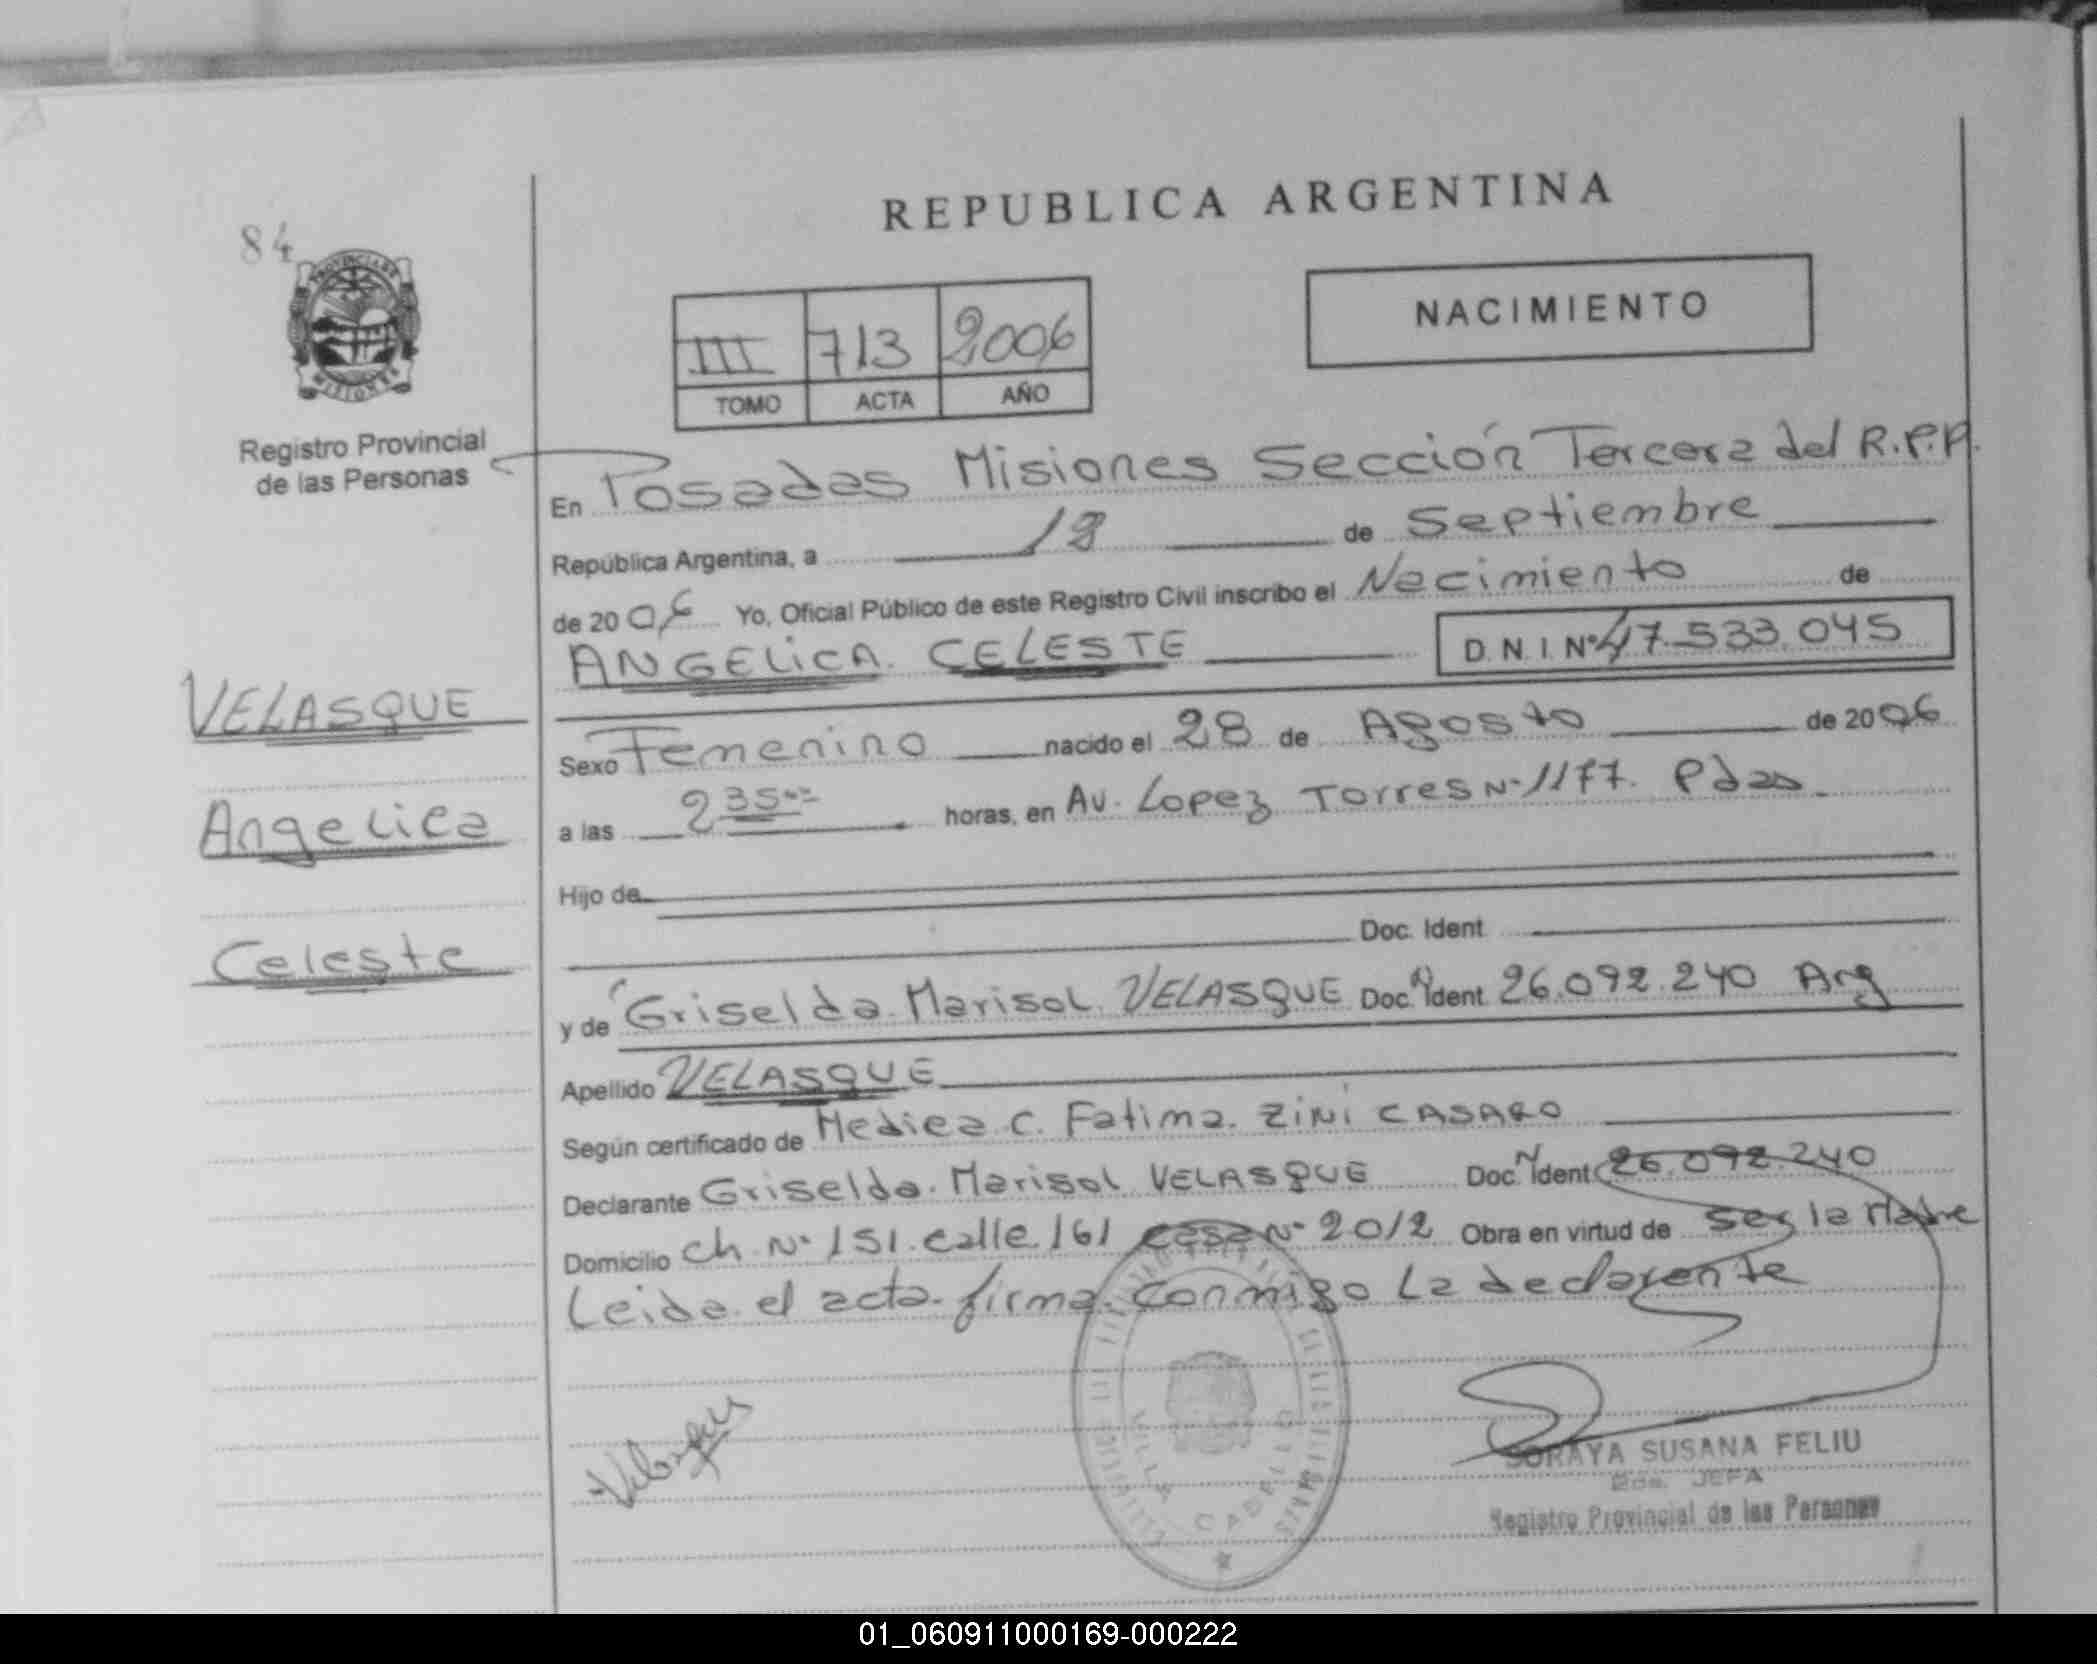 REPUBLICA ARGENTINA
84
PROVINCIA DE
MISIONES
Registro Provincial
de las Personas
III 713 2006
TOMO ACTA AÑO
NACIMIENTO
En Posadas Misiones Sección Tercera del R.P.P.
República Argentina, a 18 de Septiembre
de 2006 Yo, Oficial Público de este Registro Civil inscribo el Nacimiento de
ANGELICA CELESTE D.N.I. Nº 47.533.045
VELASQUE
Angelica
Celeste
Sexo Femenino nacido el 28 de Agosto de 2006
a las 2 35 horas, en Av. Lopez Torres Nº 1177. Pdas.
Hijo de
Doc. Ident.
y de Griselda Marisol VELASQUE Doc. N Ident. 26.092.240 Arg
Apellido VELASQUE
Según certificado de Medica C. Fatima ZINI CASARO
Declarante Griselda Marisol VELASQUE Doc. N Ident. 26.092.240
Domicilio Ch. Nº 151. calle 161 casa Nº 2012 Obra en virtud de ser la Madre
Leida el acta firma conmigo La declarente
Velasque
VILLA CABELLO
SORAYA SUSANA FELIU
JEFA
Registro Provincial de las Personas
01_060911000169-000222